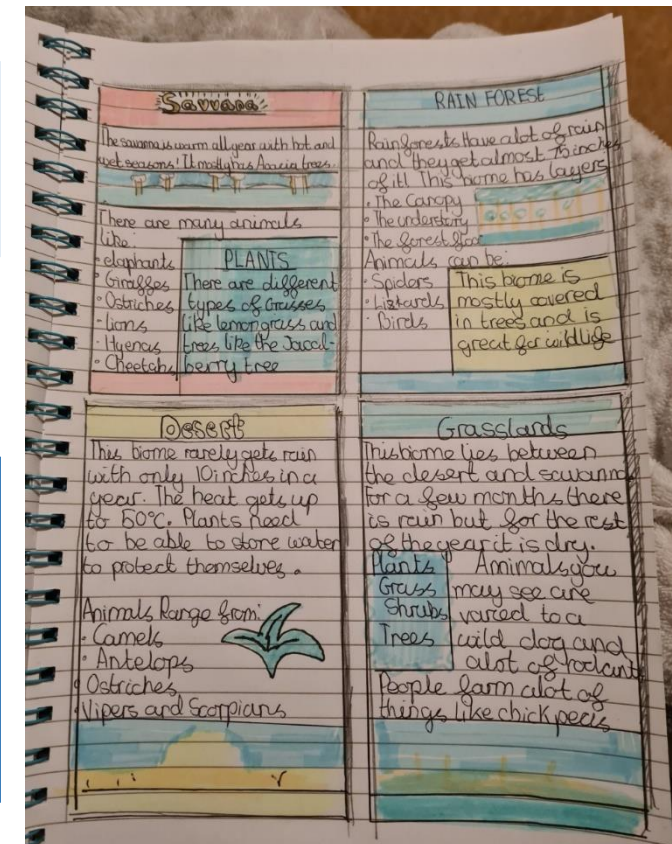 Savvana
The savanna is warm all year with hot and
wet seasons! It mostly has Acacia trees.
There are many animals
like:
• elaphants
• Giraffes
• Ostriches
• lions
• Hyenas
• Cheetahs
PLANTS
There are different
types of Grasses
like lemongrass and
trees like the Jaccal-
berry tree
RAIN FOREST
Rainforests Have alot of rain
and they get almost 75 inches
of it! This biome has layers
• The Canopy
• The understory
• The forest floor
Animals can be:
• Spiders
• Liztards
• Birds
This biome is
mostly covered
in trees and is
great for wildlife
Desert
This biome rarely gets rain
with only 10 inches in a
year. The heat gets up
to 50°C. Plants need
to be able to store water
to protect themselves.
Animals Range from:
• Camels
• Antelops
Ostriches
Vipers and Scorpians
Grasslands
This biome lies between
the desert and savanna
For a few months there
is rain but for the rest
of the year it is dry.
Plants
Grass
Shrubs
Trees
Animals you
may see are
varied to a
wild dog and
alot of rodants
People farm alot of
things like chick peas